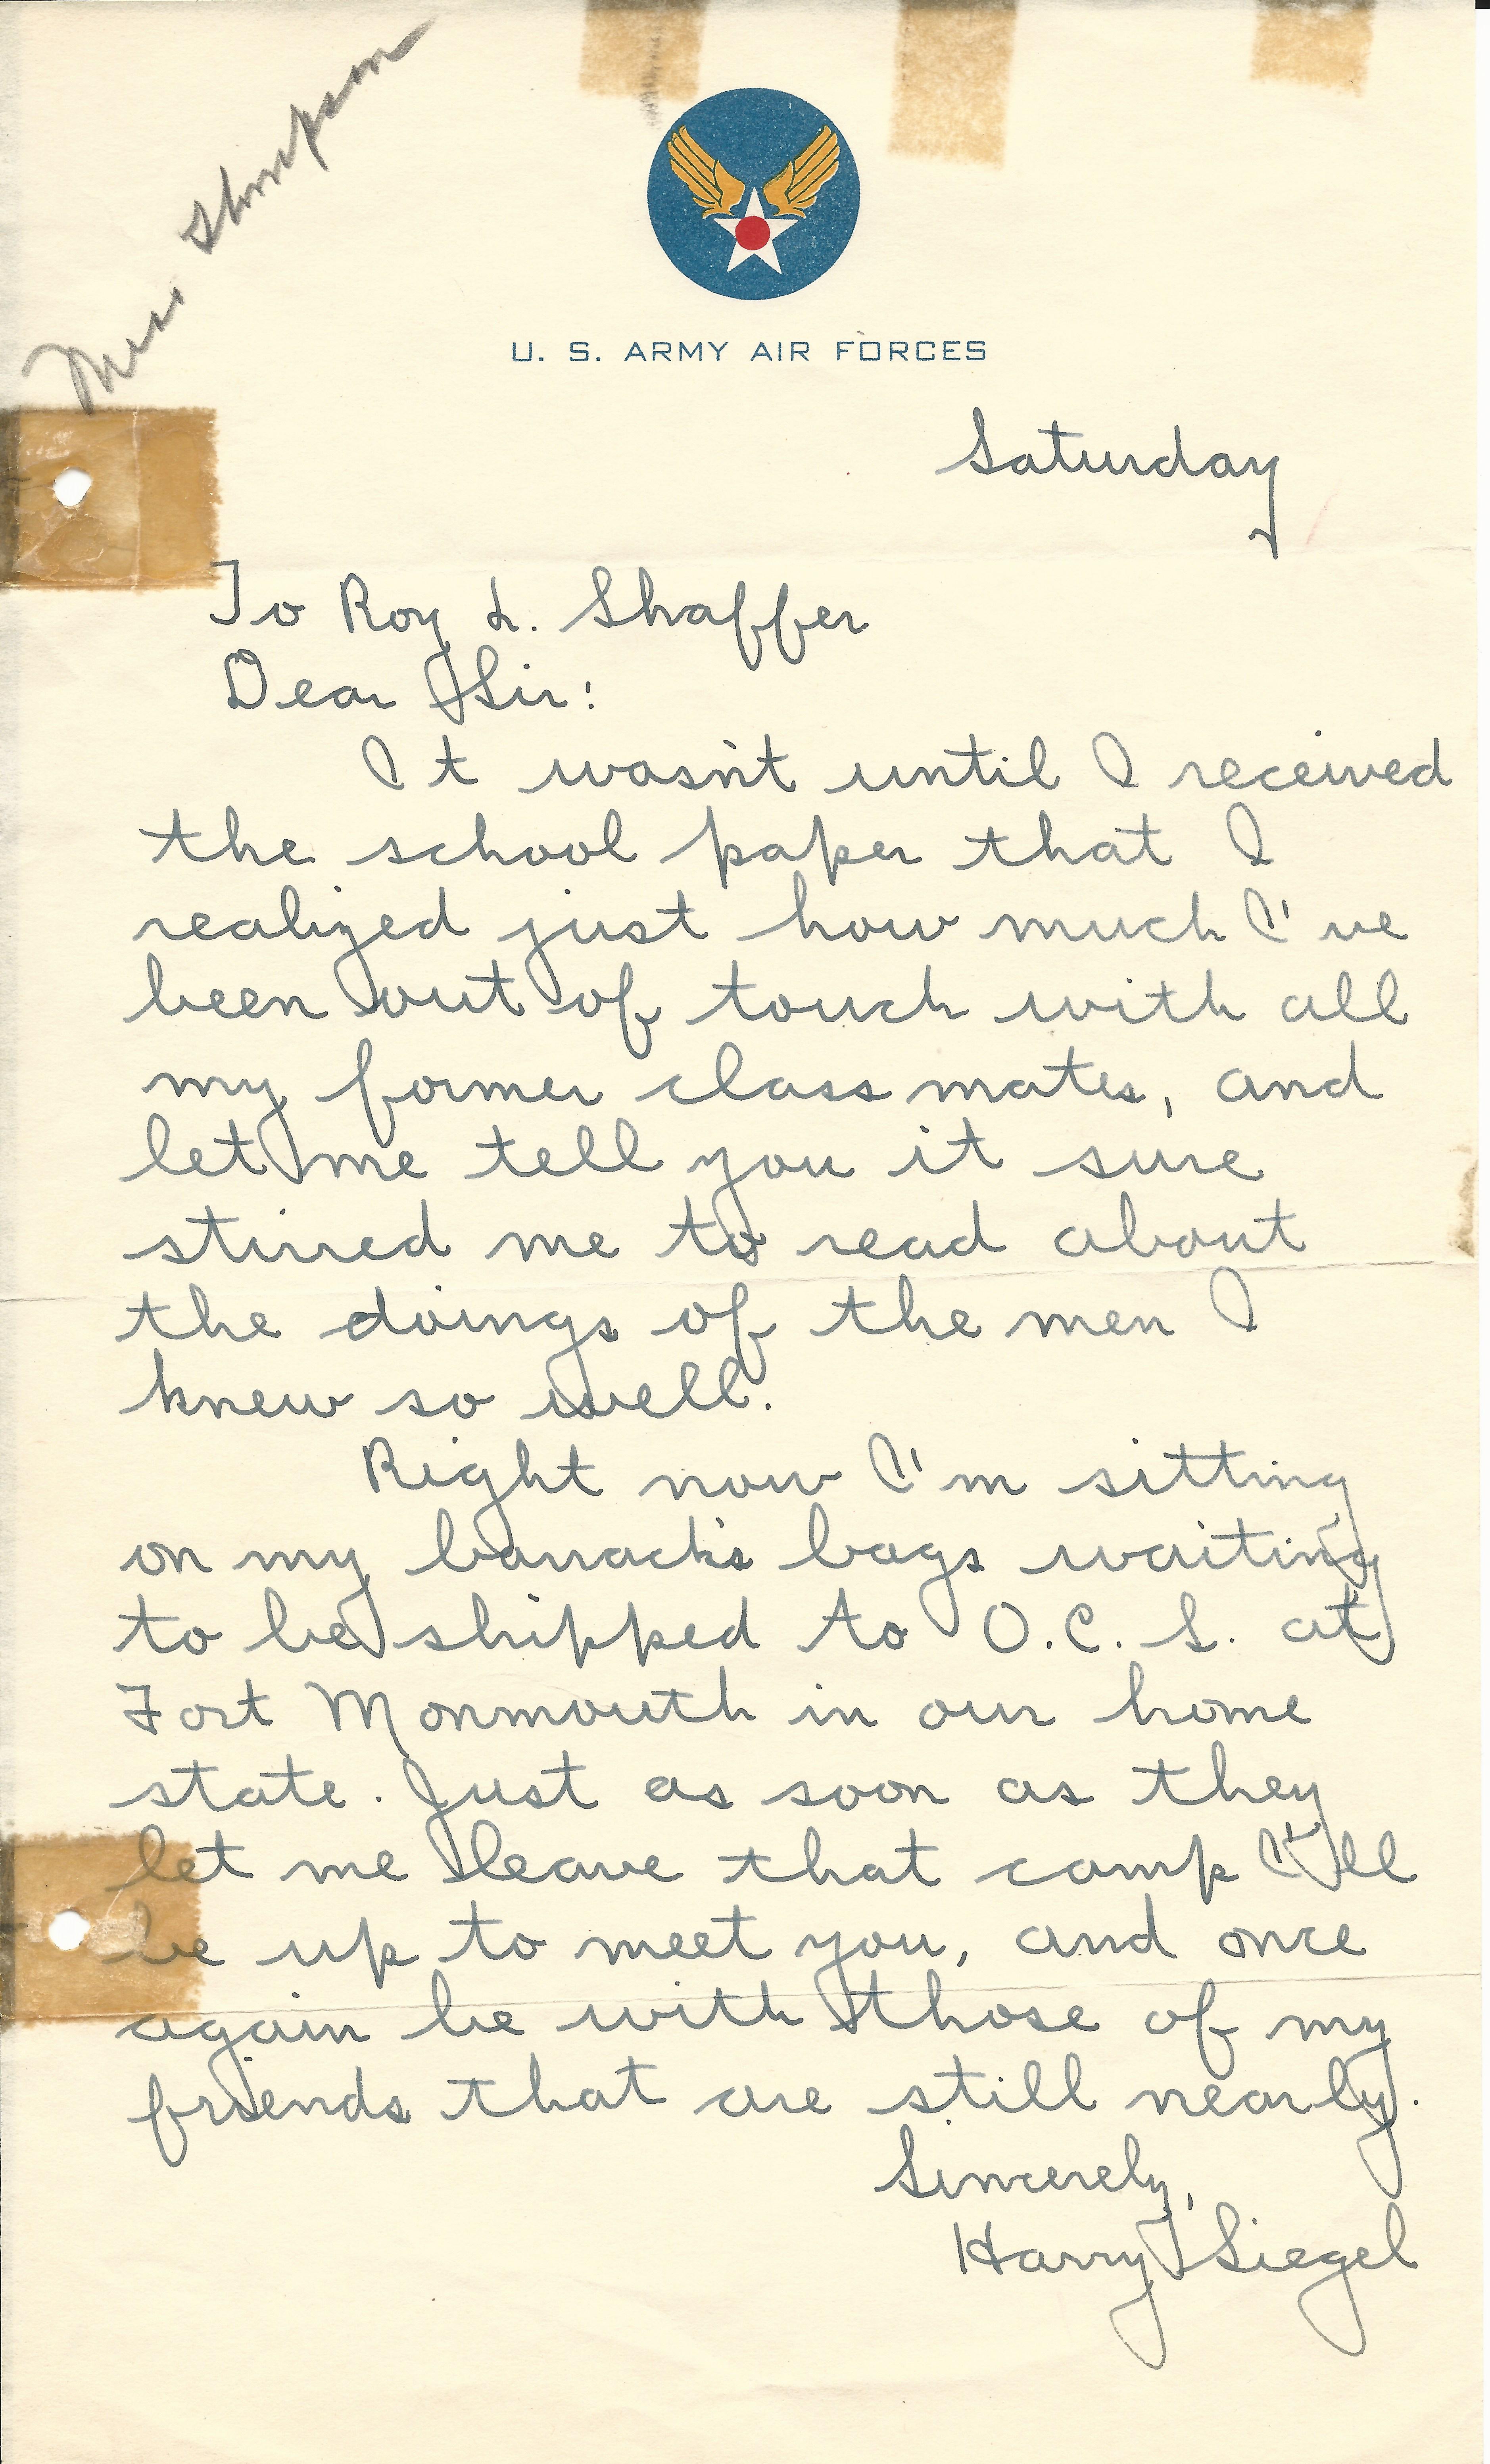 Miss Thompson
U. S. ARMY AIR FORCES
Saturday
To Roy L. Shaffer
Dear Sir:
It wasn't until I received
the school paper that I
realized just how much I've
been out of touch with all
my former class mates, and
let me tell you it sure
stirred me to read about
the doings of the men I
knew so well.
Right now I'm sitting
on my barrack's bags waiting
to be shipped to O.C.S. at
Fort Monmouth in our home
state. Just as soon as they
let me leave that camp I'll
be up to meet you, and once
again be with those of my
friends that are still nearby.
Sincerely,
Harry Siegel